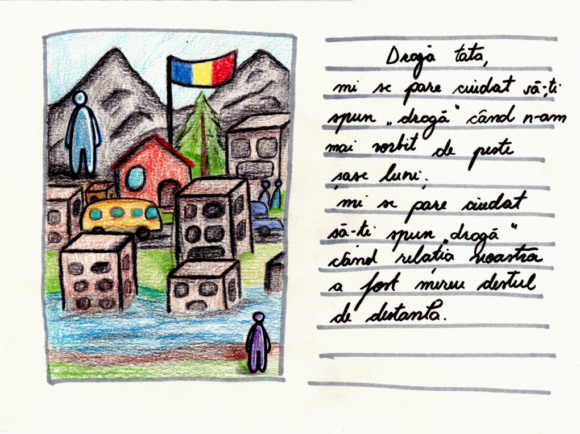 Dragă tata,
mi se pare ciudat să-ți
spun „dragă“ când n-am
mai vorbit de peste
șase luni,
mi se pare ciudat
să-ți spun „dragă“
când relația noastră
a fost mereu destul
de distantă.